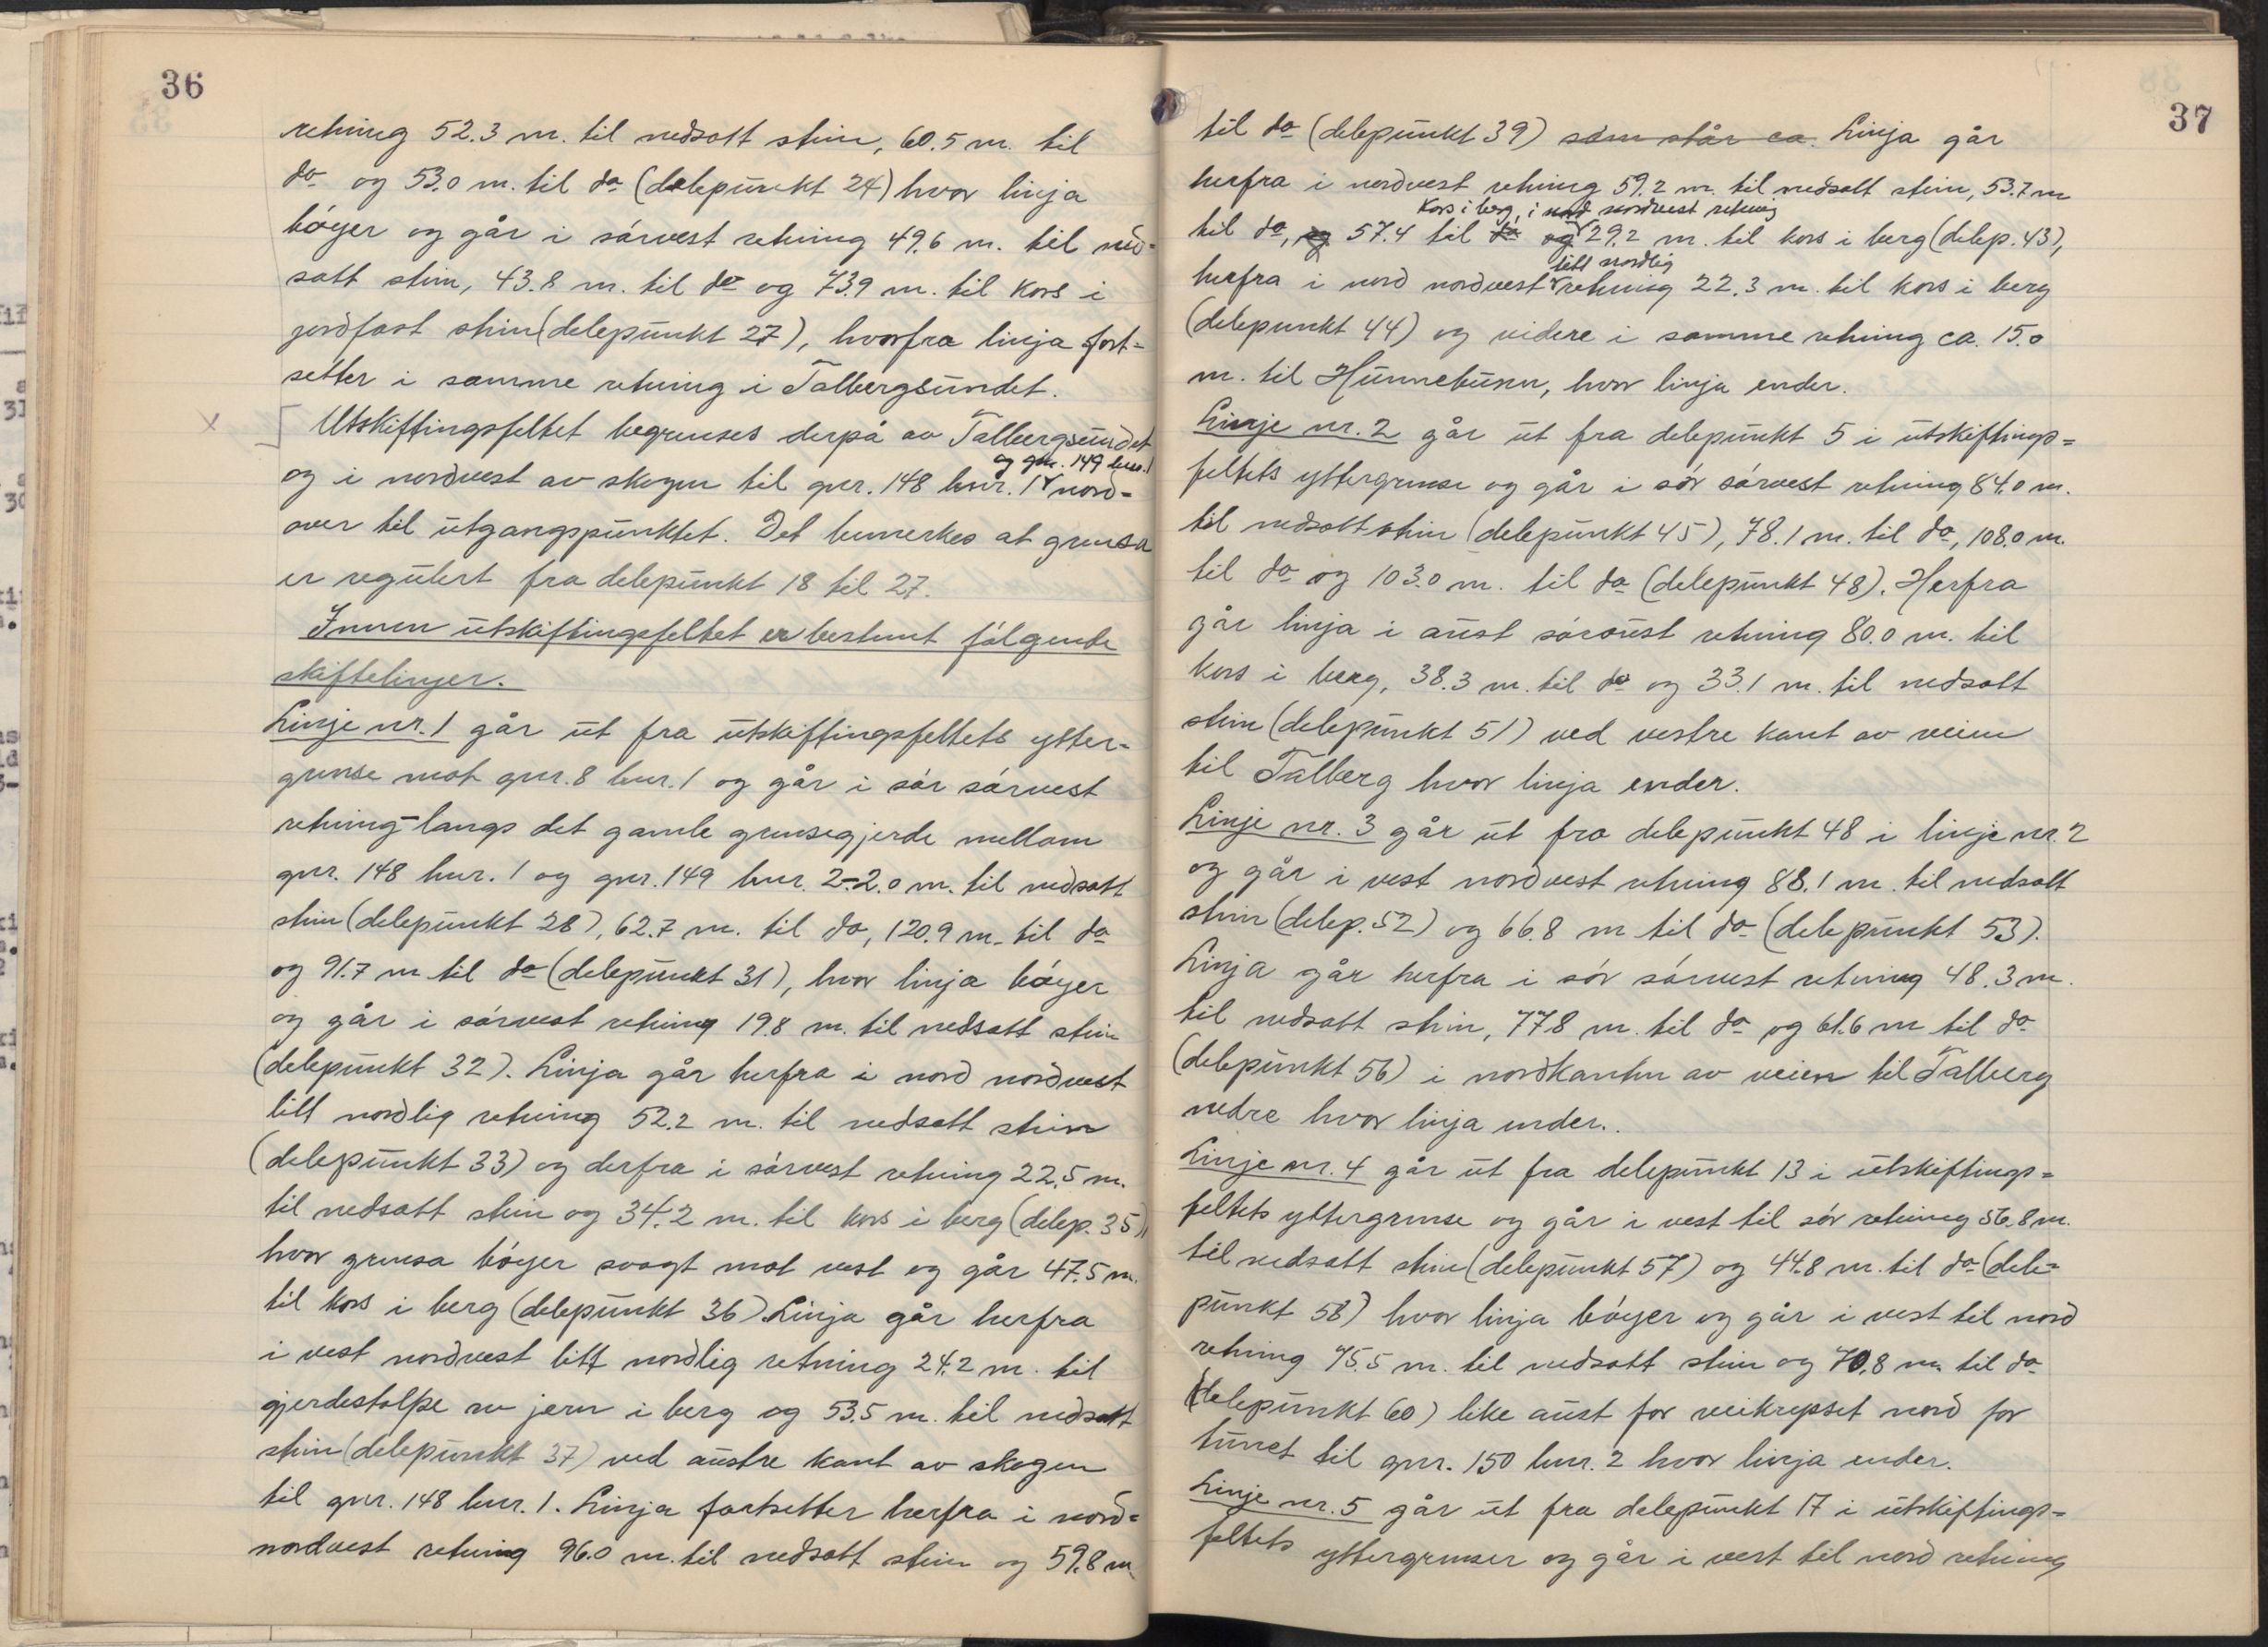 36
retning 52.3 m. til nedsatt stein, 60.5 m. til
do og 53.0 m. til do (delepunkt 24) hvor linja
bóyer og går i sórvest retning 49.6 m. til ned=
satt stein, 43.8 m. til do og 73.9 m. til kors i
jordfast stein (delepunkt 27), hvorfra linja fort=
setter i samme retning i Talbergsundet.
x Utskiftingsfeltet begrenses derpå av Talbergsundet
og gnr. 149 bnr. 1
og i nordvest av skogen til gnr. 148 bnr. 1 nord=
over til utgangspunktet. Det bemerkes at grensa
er regulert fra delepunkt 18 til 27.
Innen utskiftingsfeltet er bestemt fólgende
skiftelinjer.
Linje nr. 1 går ut fra utskiftingsfeltets ytter=
grense mot gnr. 8 bnr. 1 og går i sór sórvest
retning - langs det gamle grensegjerde mellom
gnr. 148 bnr. 1 og gnr. 149 bnr. 2 - 2.0 m. til nedsatt
stein (delepunkt 28), 62.7 m. til do, 120.9 m. til do
og 91.7 m til do (delepunkt 31), hvor linja bóyer
og går i sórvest retning 19.8 m. til nedsatt stein
(delepunkt 32). Linja går herfra i nord nordvest
litt nordlig retning 52.2 m. til nedsatt stein
(delepunkt 33) og derfra i sórvest retning 22.5 m.
til nedsatt stein og 34.2 m. til kors i berg (delep. 35),
hvor grensa bóyer svagt mot vest og går 47.5 m.
til kors i berg (delepunkt 36). Linja går herfra
i vest nordvest litt nordlig retning 24.2 m. til
gjerdestolpe av jern i berg og 53.5 m. til nedsatt
stein (delepunkt 37) ved austre kant av skogen
til gnr. 148 bnr. 1. Linja fortsetter herfra i nord=
nordvest retning 96.0 m. til nedsatt stein og 59.8 m
37
til do (delepunkt 39) som står ca. Linja går
herfra i nordvest retning 59.2 m. til nedsatt stein, 53.7 m
kors i berg, i nord nordvest retning
til do, og 57.4 til do og 29.2 m. til kors i berg (delep. 43),
litt nordlig
herfra i nord nordvest retning 22.3 m. til kors i berg
(delepunkt 44) og videre i samme retning ca. 15.0
m. til Hunnebunn, hvor linja ender.
Linje nr. 2 går ut fra delepunkt 5 i utskiftings=
feltets yttergrense og går i sór sórvest retning 84.0 m.
til nedsatt stein (delepunkt 45), 78.1 m. til do, 108.0 m.
til do og 103.0 m. til do (delepunkt 48). Herfra
går linja i aust sóraust retning 80.0 m. til
kors i berg, 38.3 m. til do og 33.1 m. til nedsatt
stein (delepunkt 51) ved vestre kant av veien
til Talberg hvor linja ender.
Linje nr. 3 går ut fra delepunkt 48 i linje nr. 2
og går i vest nordvest retning 88.1 m. til nedsatt
stein (delep. 52) og 66.8 m til do (delepunkt 53).
Linja går herfra i sór sórvest retning 48.3 m.
til nedsatt stein, 77.8 m. til do og 61.6 m til do
(delepunkt 56) i nordkanten av veien til Talberg
nedre hvor linja ender.
Linje nr. 4 går ut fra delepunkt 13 i utskiftings=
feltets yttergrense og går i vest til sór retning 56.8 m.
til nedsatt stein (delepunkt 57) og 44.8 m. til do (dele=
punkt 58) hvor linja bóyer og går i vest til nord
retning 75.5 m. til nedsatt stein og 70.8 m. til do
(delepunkt 60) like aust for veikrysset nord for
tunet til gnr. 150 bnr. 2 hvor linja ender.
Linje nr. 5 går ut fra delepunkt 17 i utskiftings=
feltets yttergrenser og går i vest til nord retning